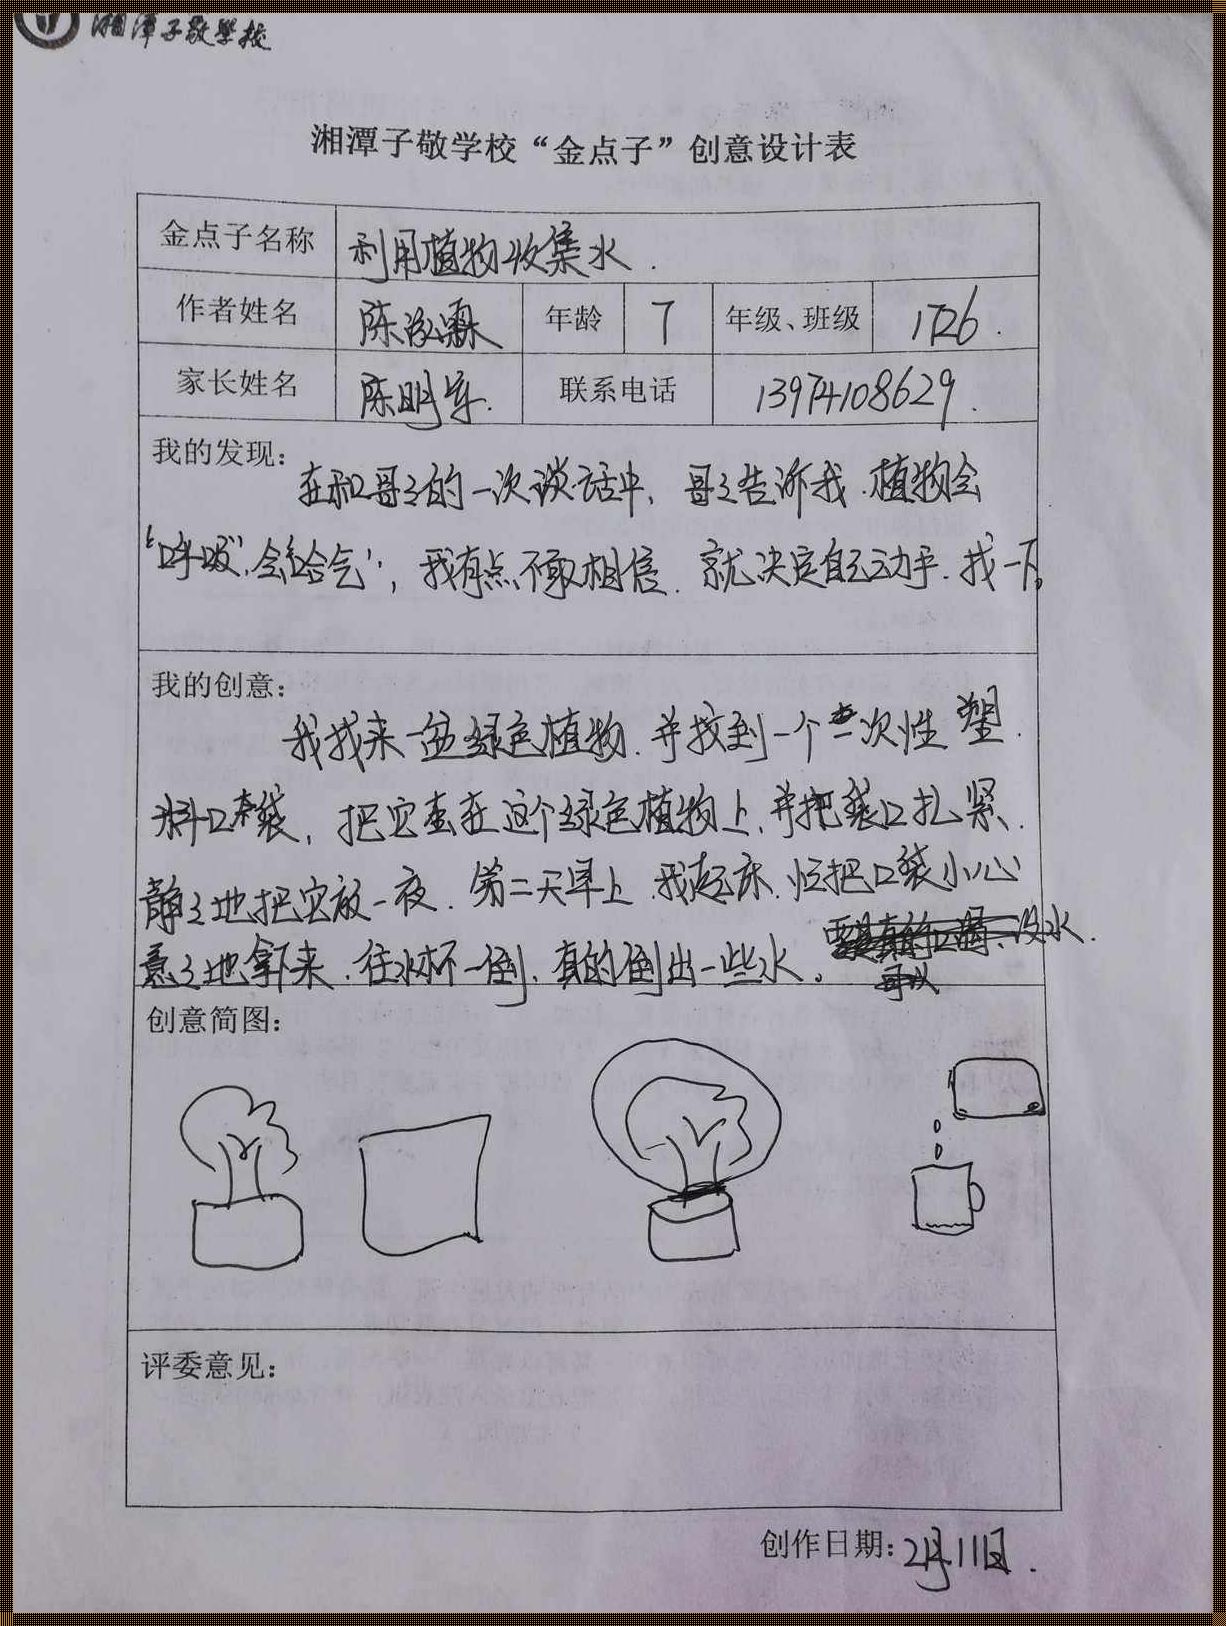 湘潭子敬学校
湘潭子敬学校“金点子”创意设计表
金点子名称 利用植物收集水.
作者姓名 陈 霖 年龄 7 年级、班级 1726.
家长姓名 陈明军. 联系电话 13974108629.
我的发现:
在和哥々的一次谈话中, 哥々告诉我.植物会
“呼吸”,会“哈气”, 我有点不敢相信. 就决定自己动手.找一下。
我的创意:
我找来一盆绿色植物.并找到一个一次性塑
料口袋, 把它套在这个绿色植物上.并把袋口扎紧.
静々地把它放一夜. 第二天早上.我起床.忙把口袋小心
意々地拿下来.往水杯一倒.真的倒出一些水。 没水.
可以
创意简图:
评委意见:
创作日期: 2月11日.